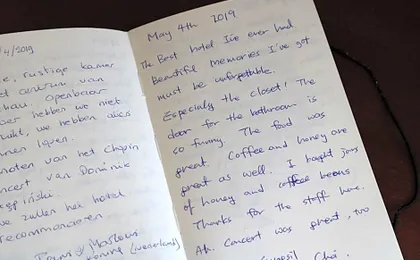 /4/2019
e, rustige kamer
et centrum van
chau. Openbaar
oer hebben we niet
ruikt, we hebben alles
nnen lopen.
noten van het Chopin
ncert van Dominik
We zullen het hotel
ecommanderen.
(Nederland)
May 4th 2019
The Best hotel I've ever had
Beautiful memories I've got
must be unforgettable.
Especially the closet! The
door for the bathroom is
so funny. The food was
great. Coffee and honey are
great as well. I baght jars
of honey and coffee beans
Thanks for the staff here.
Ah. Concert was great, two
Choi.